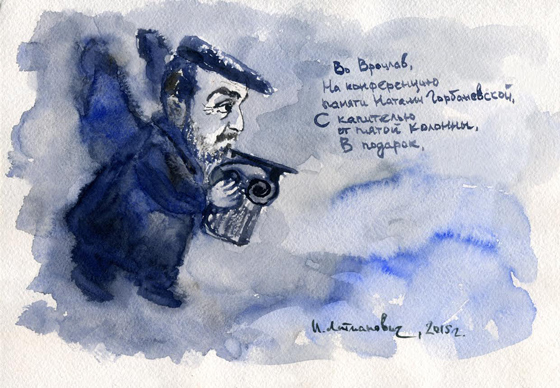 Во Вроцлав,
На конференцию
памяти Натальи Горбаневской,
С капителью
от пятой колонны,
В подарок,
, 2015 г.